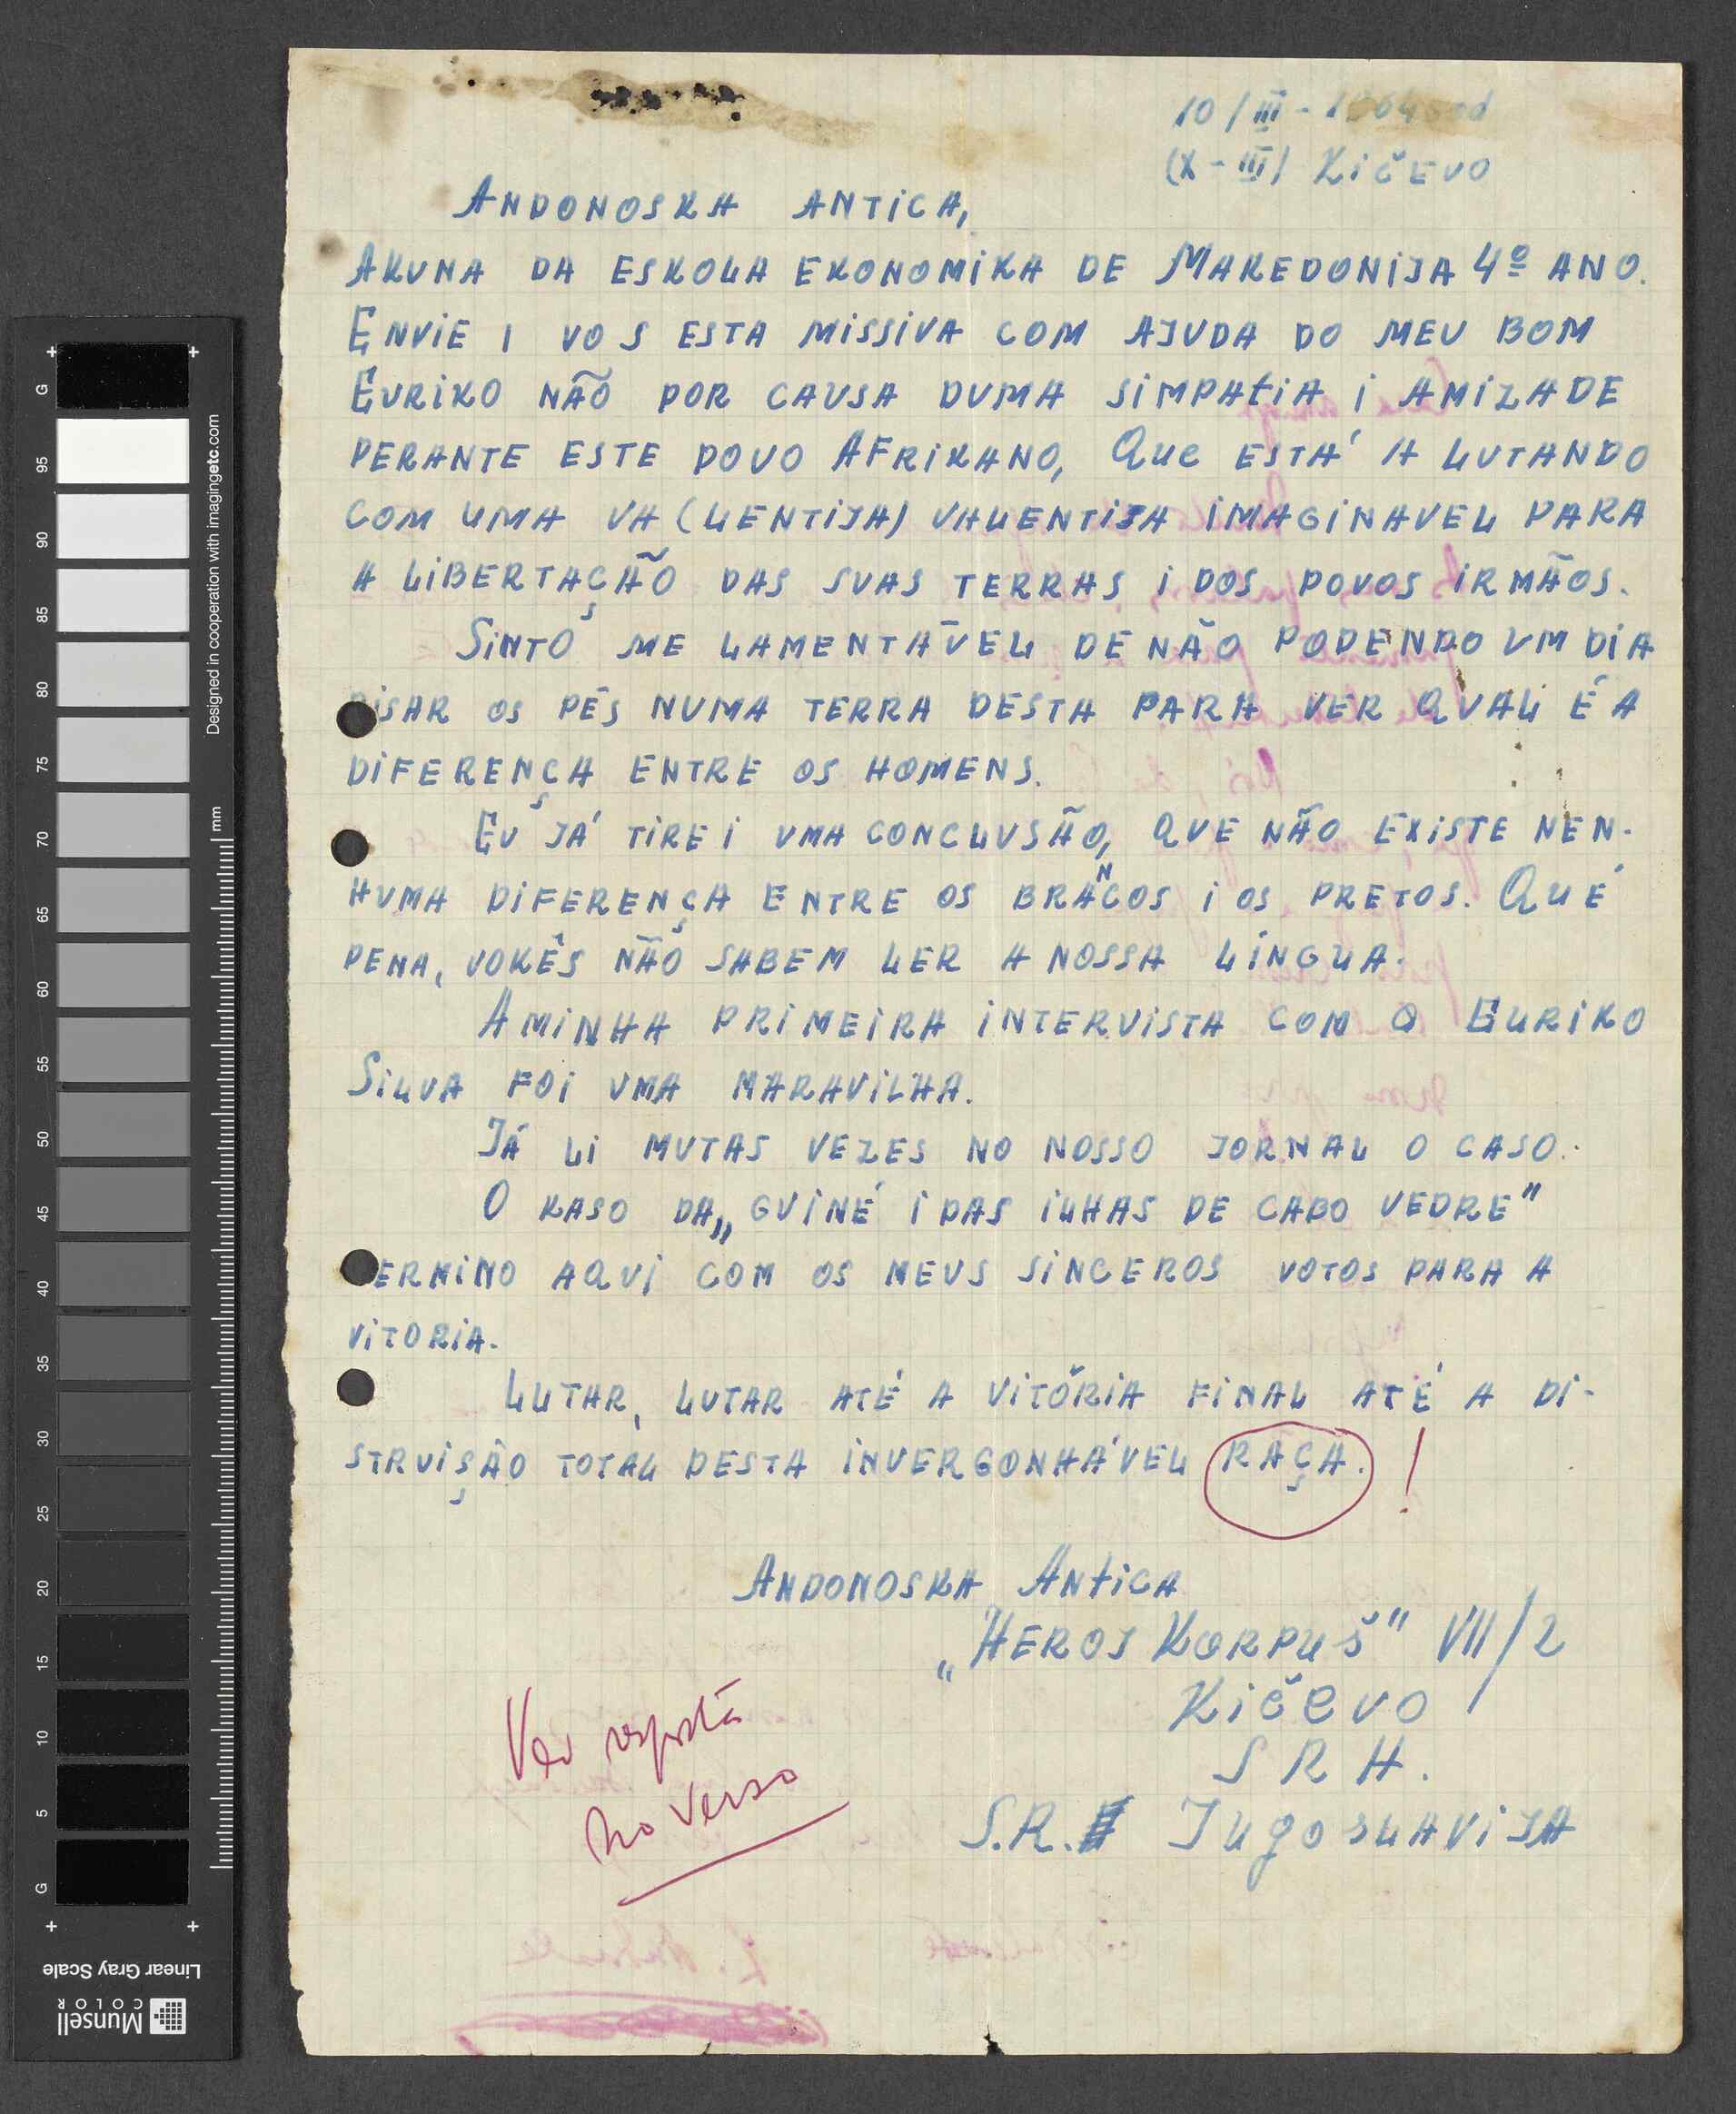 10/III-1964 god
(X-III) Kičevo
ANDONOSKA ANTICA,
AKUNA DA ESKOLA EKONOMIKA DE MAKEDONIJA 4º ANO.
ENVIE I VOS ESTA MISSIVA COM AJUDA DO MEU BOM
EURIKO NÃO POR CAUSA DUMA SIMPATIA I AMIZADE
PERANTE ESTE POVO AFRIKANO, QUE ESTÁ A LUTANDO
COM UMA VA (LENTIJA) VALENTIJA IMAGINAVEL PARA
A LIBERTAÇÃO DAS SUAS TERRAS I DOS POVOS IRMÃOS.
SINTO ME LAMENTÃVEL DE NÃO PODENDO UM DIA
PISAR OS PÉS NUMA TERRA DESTA PARA VER QUAL É A
DIFERENÇA ENTRE OS HOMENS.
EU JÁ TIREI UMA CONCLUSÃO, QUE NÃO EXISTE NEN-
HUMA DIFERENÇA ENTRE OS BRANCOS I OS PRETOS. QUÉ
PENA, VOKÊS NÃO SABEM LER A NOSSA LÍNGUA.
AMINHA PRIMEIRA INTERVISTA COM O EURIKO
SILVA FOI UMA MARAVILHA.
JÁ LI MUTAS VEZES NO NOSSO JORNAL O CASO.
O KASO DA „GUINÉ I DAS ILHAS DE CABO VEDRE"
TERMINO AQUI COM OS MEUS SINCEROS VOTOS PARA A
VITORIA.
LUTAR, LUTAR ATÉ A VITÓRIA FINAL ATÉ A DI-
STRUIÇÃO TOTAL DESTA INVERGONHÁVEL RAÇA. !
ANDONOSKA ANTICA
„HEROJ KORPUŠ" VII/2
Kičevo
S R H.
S.R. JUGOSLAVIJA
Ver resposta
no verso
Designed in cooperation with imagingetc.com
mm
G
95
90
85
80
75
70
65
60
55
50
45
40
35
30
25
20
15
10
5
G
Linear Gray Scale
Munsell
COLOR